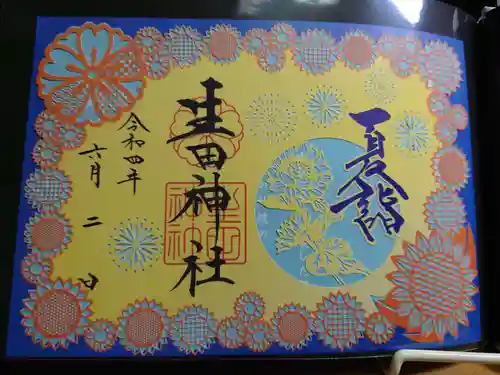 夏詣
生田神社
令和四年
六月二日